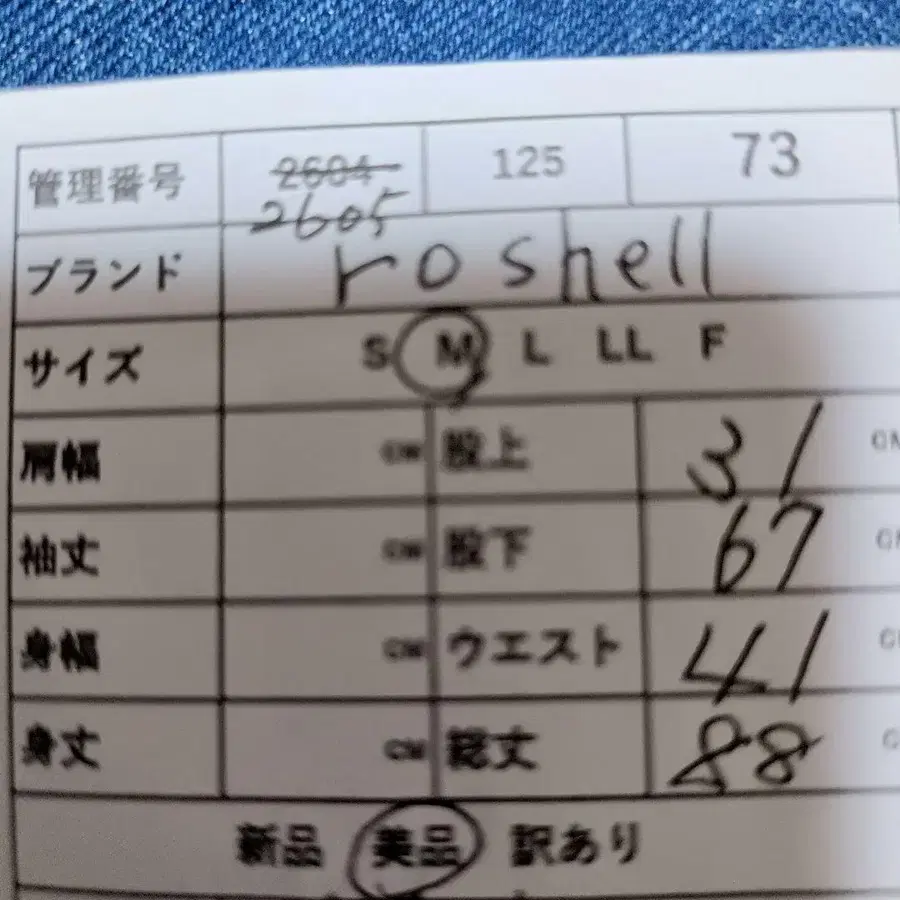 管理番号 2604 125 73
2605
ブランド roshell
サイズ S M L LL F
肩幅 CM 股上 31 CM
袖丈 CM 股下 67 CM
身幅 CM ウエスト 41 C
身丈 CM 総丈 88 C
新品 美品 訳あり